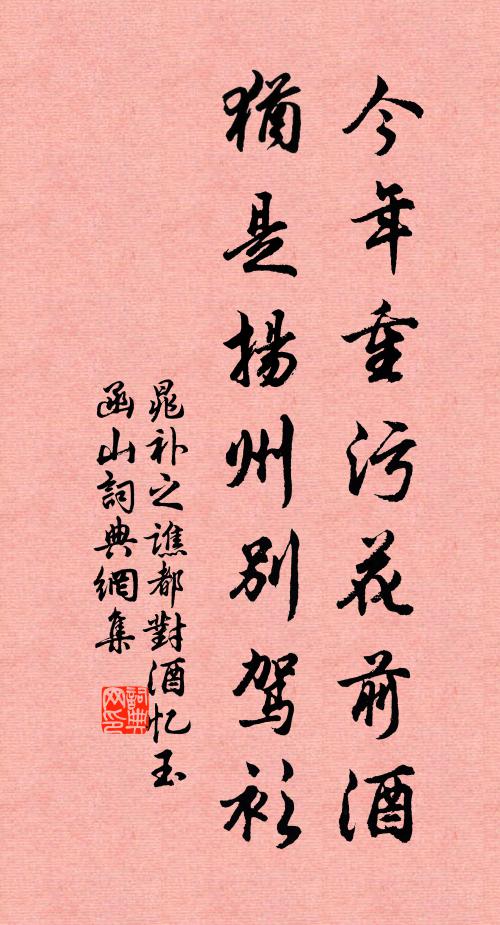 今年重污花前酒
猶是揚州別駕衫
晁补之譙都對酒忆玉
函山詞典網集
詞典
网印